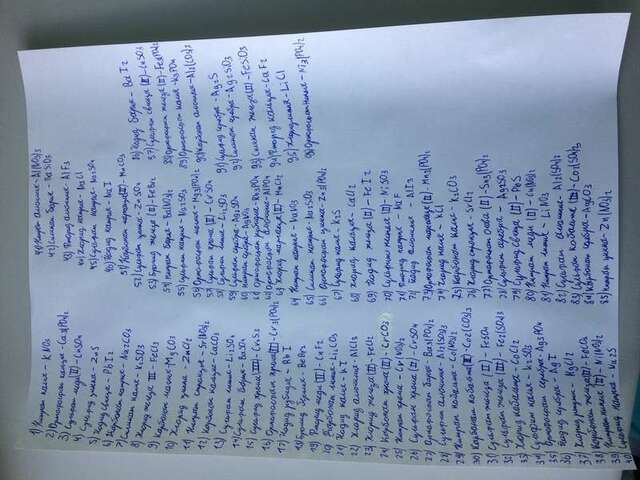 1) Нитрат калия - KNO₃
2) Ортофосфат кальция - Ca₃(PO₄)₂
3) Сульфат меди (II) - CuSO₄
4) Сульфид цинка - ZnS
5) Йодид свинца - PbI₂
6) Карбонат натрия - Na₂CO₃
7) Силикат калия - K₂SiO₃
8) Хлорид железа III - FeCl₃
9) Карбонат магния - MgCO₃
10) Хлорид цинка - ZnCl₂
11) Нитрат стронция - Sr(NO₃)₂
12) Карбонат кальция - CaCO₃
13) Сульфат лития - Li₂SO₄
14) Сульфат бария - BaSO₄
15) Сульфид хрома (III) - Cr₂S₃
16) Ортофосфат хрома (II) - Cr₃(PO₄)₂
17) Йодид рубидия - RbI
18) Бромид бериллия - BeBr₂
19) Фторид меди (II) - CuF₂
20) Карбонат лития - Li₂CO₃
21) Йодид калия - KI
22) Хлорид алюминия - AlCl₃
23) Хлорид железа (II) - FeCl₂
24) Карбонат хрома (II) - CrCO₃
25) Нитрат хрома - Cr(NO₃)₂
26) Сульфат хрома (II) - CrSO₄
27) Ортофосфат бария - Ba₃(PO₄)₂
28) Сульфит алюминия - Al₂(SO₃)₃
29) Нитрат кобальта - Co(NO₃)₂
30) Карбонат кобальта (III) - Co₂(CO₃)₃
31) Сульфат железа (II) - FeSO₄
32) Сульфат железа (III) - Fe₂(SO₄)₃
33) Хлорид кобальта - CoCl₂
34) Сульфит калия - K₂SO₃
35) Ортофосфат серебра - Ag₃PO₄
36) Йодид серебра - AgI
37) Хлорид ртути - HgCl₂
38) Карбонат железа (II) - FeCO₃
39) Нитрат никеля (II) - Ni(NO₃)₂
40) Сульфид натрия - Na₂S
41) Нитрат алюминия - Al(NO₃)₃
42) Силикат бария - BaSiO₃
43) Фторид алюминия - AlF₃
44) Хлорид натрия - NaCl
45) Сульфат натрия - Na₂SO₄
46) Йодид натрия - NaI
51) Карбонат марганца (II) - MnCO₃
52) Сульфат цинка - ZnSO₄
53) Бромид железа (II) - FeBr₂
54) Нитрат бария - Ba(NO₃)₂
55) Сульфит натрия - Na₂SO₃
56) Ортофосфат магния - Mg₃(PO₄)₂
57) Сульфат хрома (II) - CrSO₄
58) Сульфит лития - Li₂SO₃
59) Сульфат серебра - Ag₂SO₄
60) Нитрат серебра - AgNO₃
61) Ортофосфат рубидия - Rb₃PO₄
62) Ортофосфат алюминия - AlPO₄
63) Хлорид марганца (II) - MnCl₂
64) Нитрат натрия - NaNO₃
65) Силикат натрия - Na₂SiO₃
66) Ортофосфат цинка - Zn₃(PO₄)₂
67) Сульфид калия - K₂S
68) Хлорид кальция - CaCl₂
69) Йодид железа (II) - FeI₂
70) Сульфит никеля (II) - NiSO₃
71) Фторид натрия - NaF
72) Йодид алюминия - AlI₃
73) Ортофосфат марганца (II) - Mn₃(PO₄)₂
74) Хлорид калия - KCl
75) Карбонат калия - K₂CO₃
76) Хлорид стронция - SrCl₂
77) Ортофосфат олова (II) - Sn₃(PO₄)₂
78) Сульфит серебра - Ag₂SO₃
79) Сульфид свинца (II) - PbS
80) Нитрат меди (II) - Cu(NO₃)₂
81) Нитрат лития - LiNO₃
82) Сульфат алюминия - Al₂(SO₄)₃
83) Сульфат кобальта (III) - Co₂(SO₄)₃
84) Карбонат серебра - AgCO₃
85) Нитрат цинка - Zn(NO₃)₂
86) Йодид бария - BaI₂
87) Сульфит свинца (II) - CuSO₃
88) Ортофосфат железа (II) - Fe₃(PO₄)₂
89) Ортофосфат калия - K₃PO₄
90) Карбонат алюминия - Al₂(CO₃)₃
91) Сульфид серебра - Ag₂S
92) Силикат серебра - Ag₂SiO₃
93) Силикат железа (II) - FeSiO₃
94) Фторид кальция - CaF₂
95) Хлорид лития - LiCl
96) Ортофосфат никеля - Ni₃(PO₄)₂